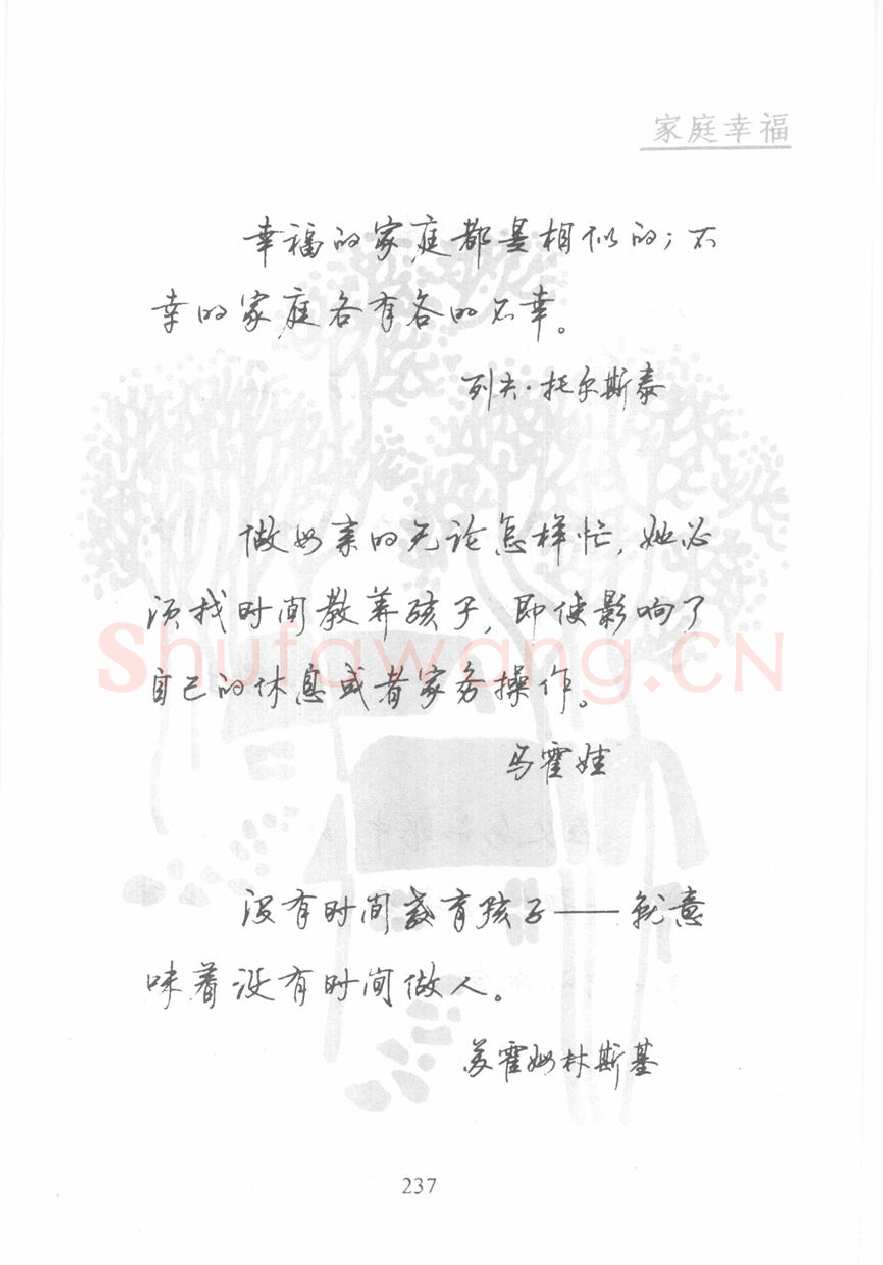 家庭幸福
幸福的家庭都是相似的；不
幸的家庭各有各的不幸。
列夫·托尔斯泰
做母亲的无论怎样忙，她必
须找时间教养孩子，即使影响了
自己的休息或者家务操作。
马霍娃
没有时间教育孩子——就意
味着没有时间做人。
苏霍姆林斯基
237
Shufawang.CN